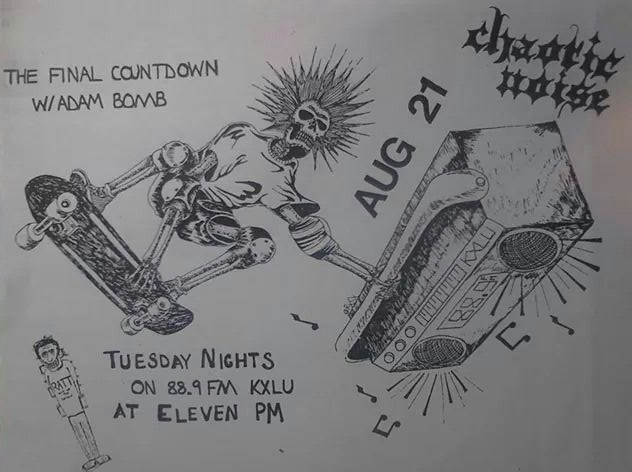 THE FINAL COUNTDOWN
W/ADAM BOMB
AUG 21
chaotic
noise
KXLU
88.9
RATT
TUESDAY NIGHTS
ON 88.9 FM KXLU
AT ELEVEN PM